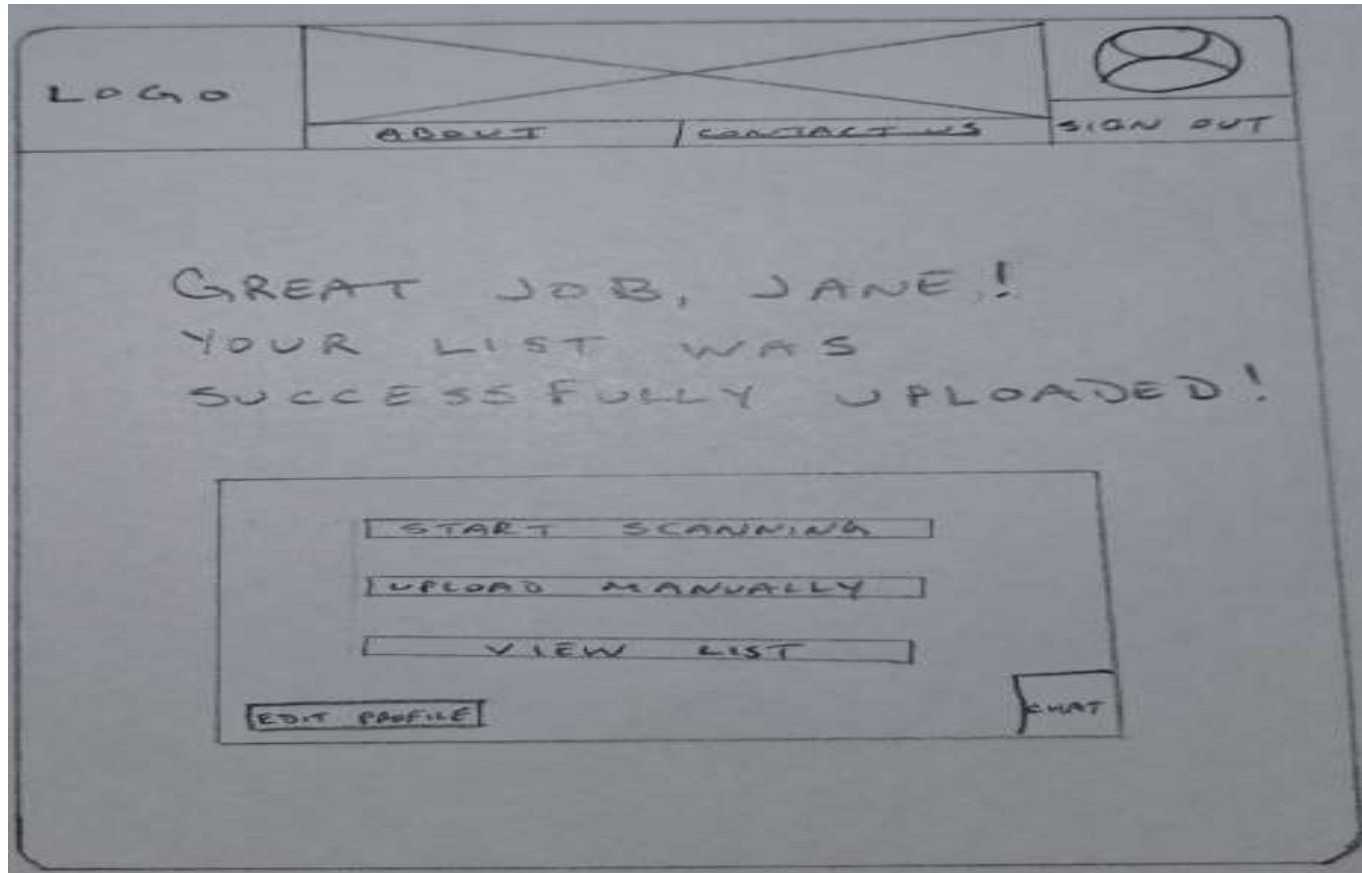 LOGO
ABOUT
CONTACT US
SIGN OUT
GREAT JOB, JANE!
YOUR LIST WAS
SUCCESSFULLY UPLOADED!
START SCANNING
UPLOAD MANUALLY
VIEW LIST
EDIT PROFILE
CHAT